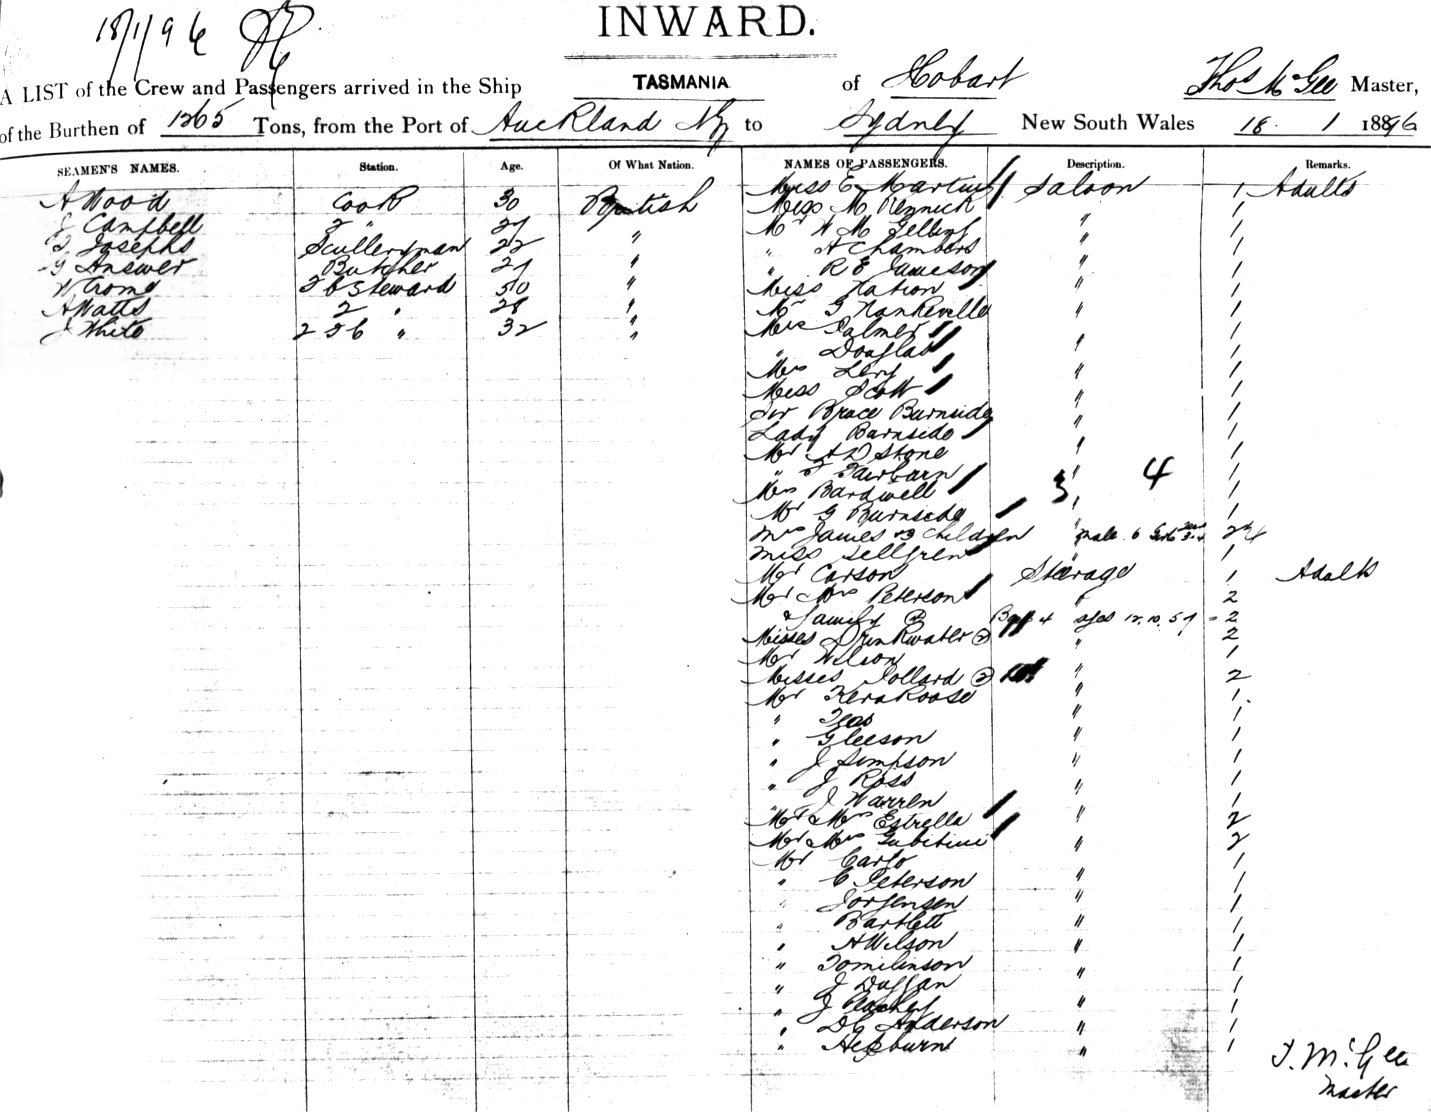 18/1/96
INWARD.
A LIST of the Crew and Passengers arrived in the Ship TASMANIA of Hobart Thos McGee Master,
of the Burthen of 1265 Tons, from the Port of Auckland NZ to Sydney New South Wales 18 1 1896
SEAMEN'S NAMES. Station. Age. Of What Nation. NAMES OF PASSENGERS. Description. Remarks.
A Wood Cook 30 British
J Campbell 2 " 27 "
Josephs Sculleryman 22 "
G Answer Butcher 27 "
W Crome Steward 50 "
A Watts 2 " 28 "
J White 2 " 32 "
Miss E Martin Saloon 1 Adults
Miss M Rennick " 1
Mr W M Gelling " 1
" A Chambers " 1
" R E Jameson " 1
Miss Nation " 1
Mr G Nankeville " 1
Mrs Palmer " 1
" Douglas " 1
Mrs Levy " 1
Miss Scott " 1
Sir Bruce Burnside " 1
Lady Burnside " 1
Mr A D Stone " 1
" Fairbairn " 1
Mrs Bardwell " 1
3 4
Mr G Burnside " 1
Mrs James & 3 Children male 6
Miss Sellgren " 1
Mr Carson Steerage 1 Adults
Mr & Mrs Peterson " 2
& family Boys 4 ages 12. 10. 5 = 2
Misses Drinkwater 2 " 2
Mr Wilson " 1
Misses Pollard 2 " 2
Mr Kerakoose " 1
" " 1
" Gleeson " 1
" J Simpson " 1
" J Ross " 1
" J Warren " 1
Mr & Mrs Estrella " 2
Mr & Mrs Gubitini " 2
Mr Carlo " 1
" C Peterson " 1
" Jorgensen " 1
" Bartlett " 1
" A Wilson " 1
" Tomlinson " 1
" J Duggan " 1
" J Peachey " 1
" D G Anderson " 1
" Hepburn " 1
T. McGee
Master